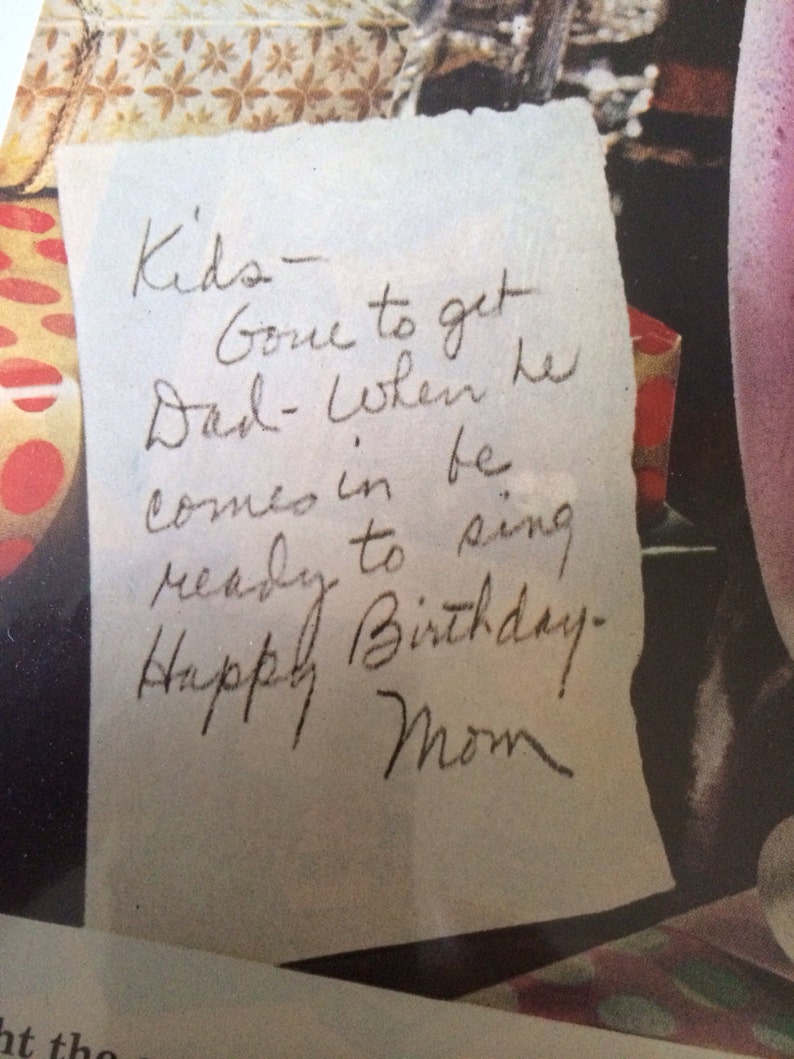 Kids-
Gone to get
Dad- When he
comes in be
ready to sing
Happy Birthday-
Mom
ht the